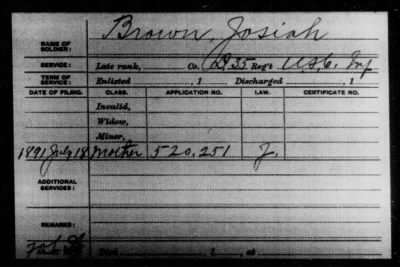 Brown, Josiah
NAME OF SOLDIER:
SERVICE: Late rank, Co. D, 35 Reg't U.S.C. Inf
TERM OF SERVICE: Enlisted , 1 Discharged , 1
DATE OF FILING. CLASS. APPLICATION NO. LAW. CERTIFICATE NO.
Invalid,
Widow,
Minor,
1891 July 18 Mother 520,251 J.
ADDITIONAL SERVICES:
REMARKS:
Died , 1 , at